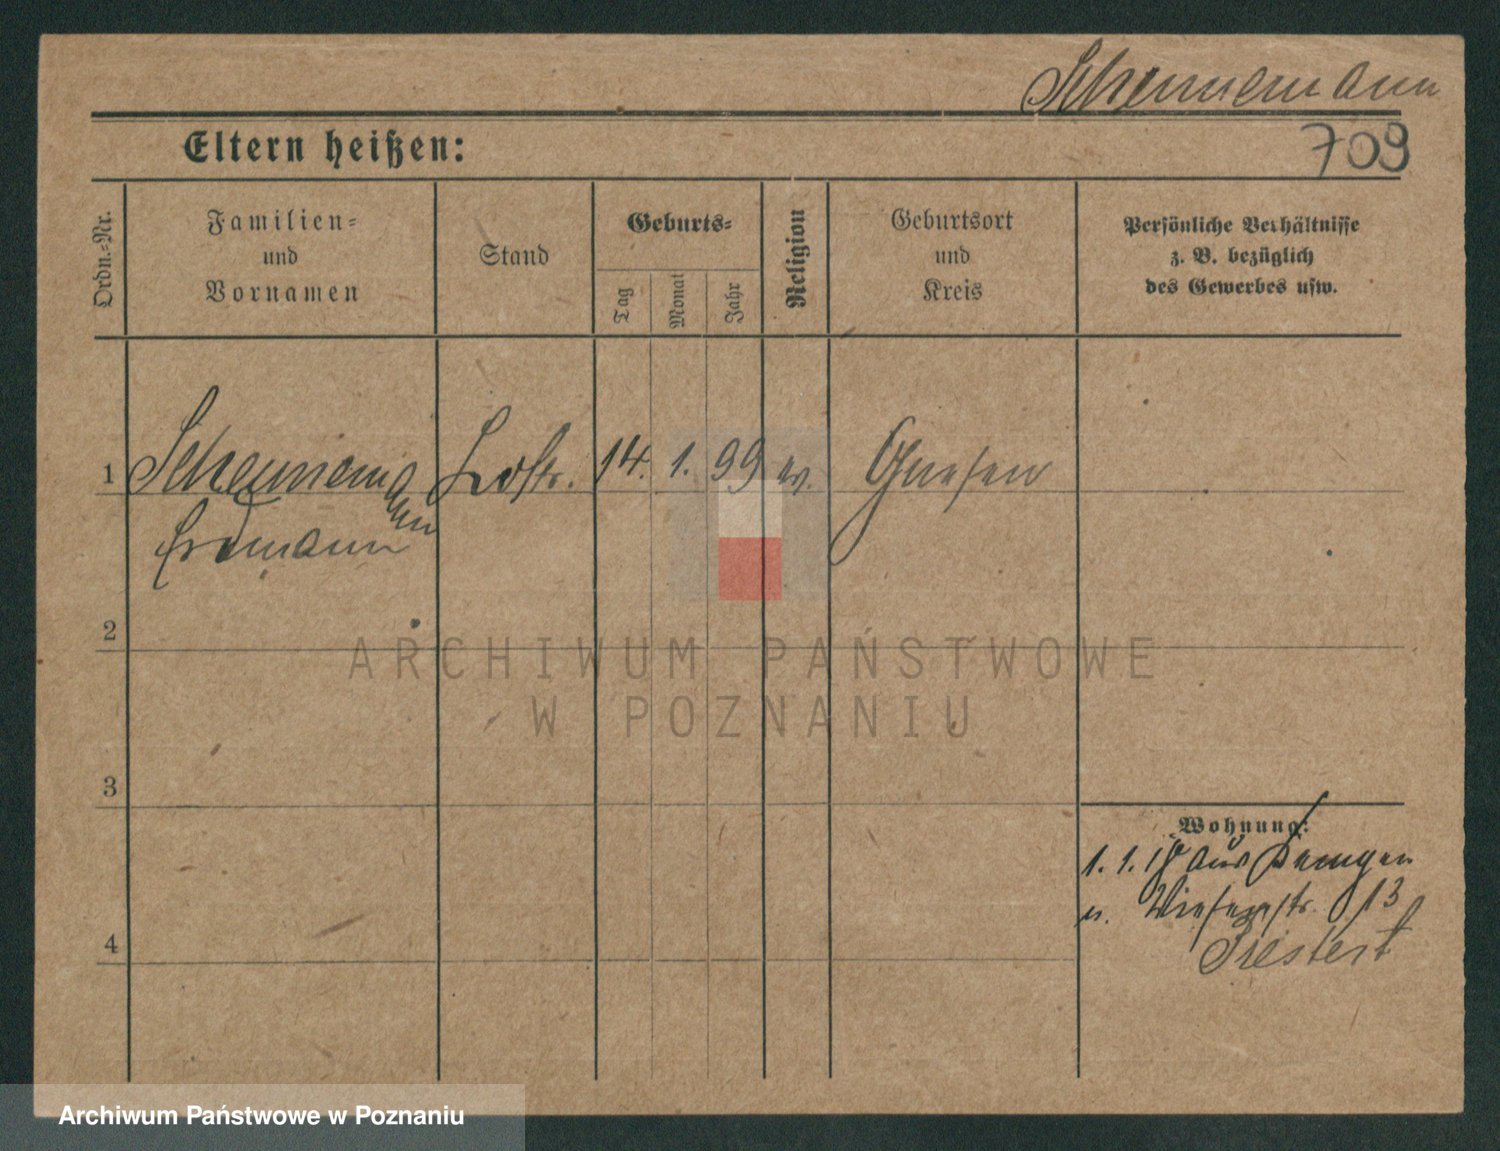 Schennemann
709
Eltern heißen:
Ordn.-Nr.
Familien-
und
Vornamen
Stand
Geburts-
Tag
Monat
Jahr
Religion
Geburtsort
und
Kreis
Persönliche Verhältnisse
z. B. bezüglich
des Gewerbes usw.
1 Schennemann 14. 1. 99 ev. Gnesen
Erdmann
2
3
4
Wohnung:
1. 1. aus
n. Wiesenstr. 13
ARCHIWUM PAŃSTWOWE
W POZNANIU
Archiwum Państwowe w Poznaniu